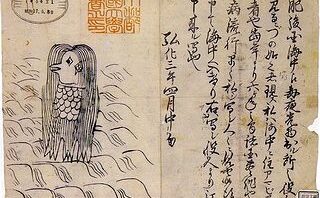 肥後国海中え毎夜光物出ル所之役人
づの如く者現ス私ハ海中ニ住アマビ
者也當年より六ヶ年之間諸国豊作也
病流行早々私ヲ写シ人々ニ見セ候
申て海中へ入けり右写シ役人より江
申来ル写也
弘化三年四月中旬